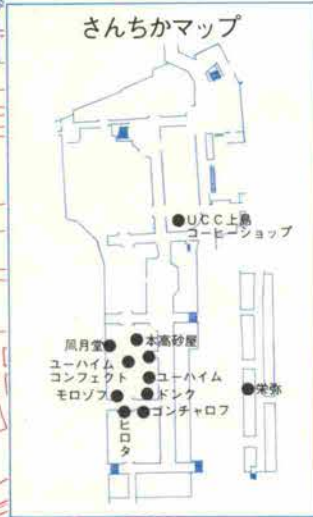 さんちかマップ
UCC上島
コーヒーショップ
風月堂
本高砂屋
ユーハイム
コンフェクト
ユーハイム
モロゾフ
ドンク
ゴンチャロフ
ヒロタ
栄弥